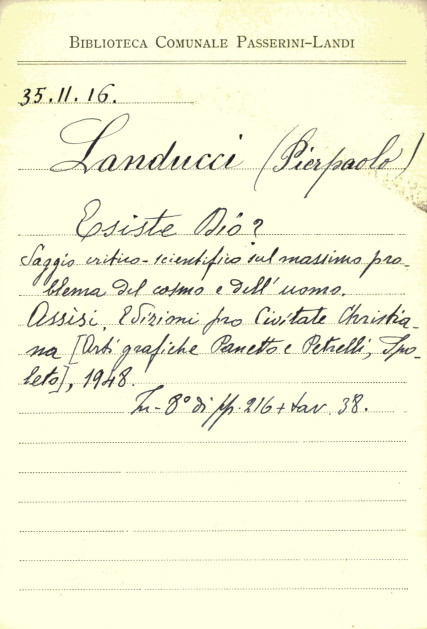 BIBLIOTECA COMUNALE PASSERINI-LANDI
35.11.16.
Landucci (Pierpaolo)
Esiste Dio?
Saggio critico-scientifico sul massimo pro-
blema del cosmo e dell'uomo.
Assisi, Edizioni pro Civitate Christia-
na [Arti grafiche Panetto e Petrelli, Spo-
leto], 1948.
In-8° di pp. 216 + tav. 38.